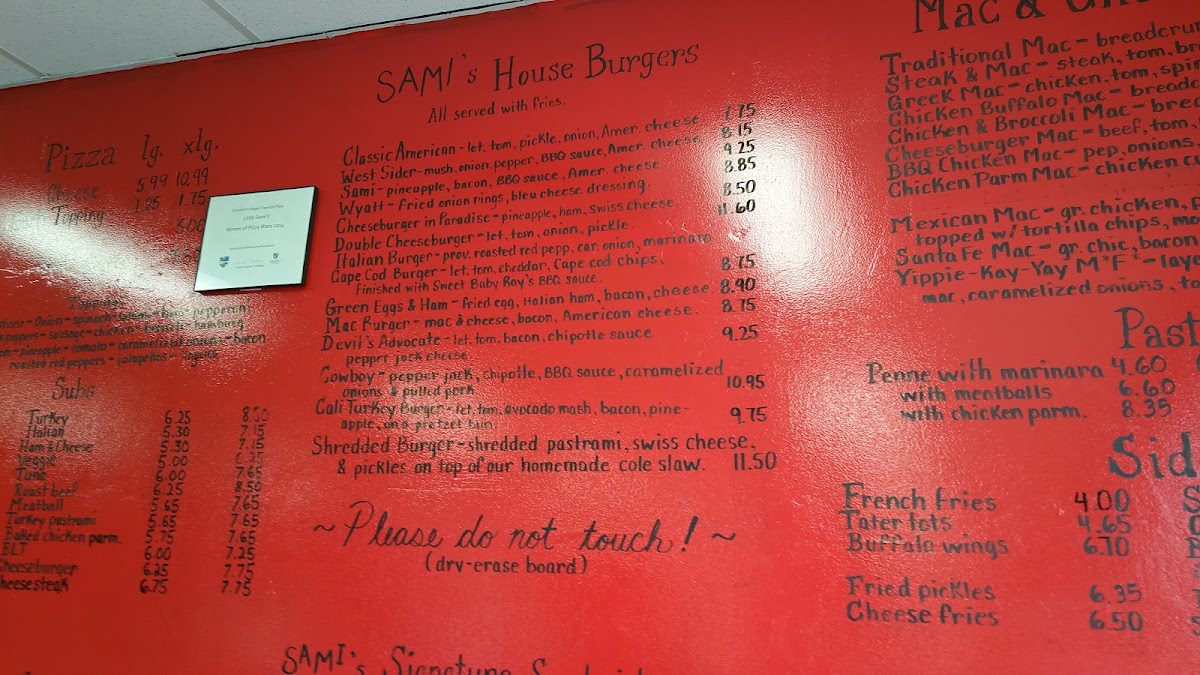 Pizza lg. xlg.
Cheese 5.99 10.99
Topping 1.25 1.75
Little Sami's
Winner of Pizza Wars 2014
Toppings
onion - spinach
peppers - sausage - chicken - broccoli - hamburg
pineapple - tomato - caramelized onion - bacon
roasted red peppers - jalapeños
Subs
Turkey 6.25 8.50
Italian 5.30 7.15
Ham & Cheese 5.30 7.15
Veggie 5.00 6.25
Tuna 6.00 7.65
Roast beef 6.25 8.50
Meatball 5.65 7.65
Turkey pastrami 5.65 7.65
Baked chicken parm. 5.75 7.65
BLT 6.00 7.25
Cheeseburger 6.25 7.75
Cheesesteak 6.75 7.75
SAMI's House Burgers
All served with fries.
Classic American - let, tom, pickle, onion, Amer. cheese 7.75
West Sider - mush, onion, pepper, BBQ sauce, Amer. cheese 8.15
Sami - pineapple, bacon, BBQ sauce, Amer. cheese 9.25
Wyatt - Fried onion rings, bleu cheese dressing 8.85
Cheeseburger in Paradise - pineapple, ham, Swiss cheese 8.50
Double Cheeseburger - let, tom, onion, pickle. 11.60
Italian Burger - prov. roasted red pepp, car. onion, marinara
Cape Cod Burger - let, tom, cheddar, Cape cod chips, 8.75
finished with Sweet Baby Ray's BBQ sauce.
Green Eggs & Ham - Fried egg, Italian ham, bacon, cheese 8.90
Mac Burger - mac & cheese, bacon, American cheese. 8.75
Devil's Advocate - let, tom, bacon, chipotle sauce 9.25
pepper jack cheese
Cowboy - pepper jack, chipotle, BBQ sauce, caramelized
onions & pulled pork 10.95
Cali Turkey Burger - let, tom, avocado mash, bacon, pine-
apple, on a pretzel bun. 9.75
Shredded Burger - shredded pastrami, swiss cheese,
& pickles on top of our homemade cole slaw. 11.50
~ Please do not touch! ~
(dry-erase board)
SAMI's Signature
Mac &
Traditional Mac - breadcrum
Steak & Mac - steak, tom, br
Greek Mac - chicken, tom, spin
Chicken Buffalo Mac - breadc
Chicken & Broccoli Mac - bread
Cheeseburger Mac - beef, tom,
BBQ Chicken Mac - pep, onions,
Chicken Parm Mac - chicken c
Mexican Mac - gr. chicken,
topped w/ tortilla chips, ma
Santa Fe Mac - gr. chic, bacon
Yippie-Kay-Yay M*F* - laye
mac, caramelized onions, to
Past
Penne with marinara 4.60
with meatballs 6.60
with chicken parm. 8.35
Sid
French fries 4.00
Tater tots 4.65
Buffalo wings 6.70
Fried pickles 6.35
Cheese fries 6.50